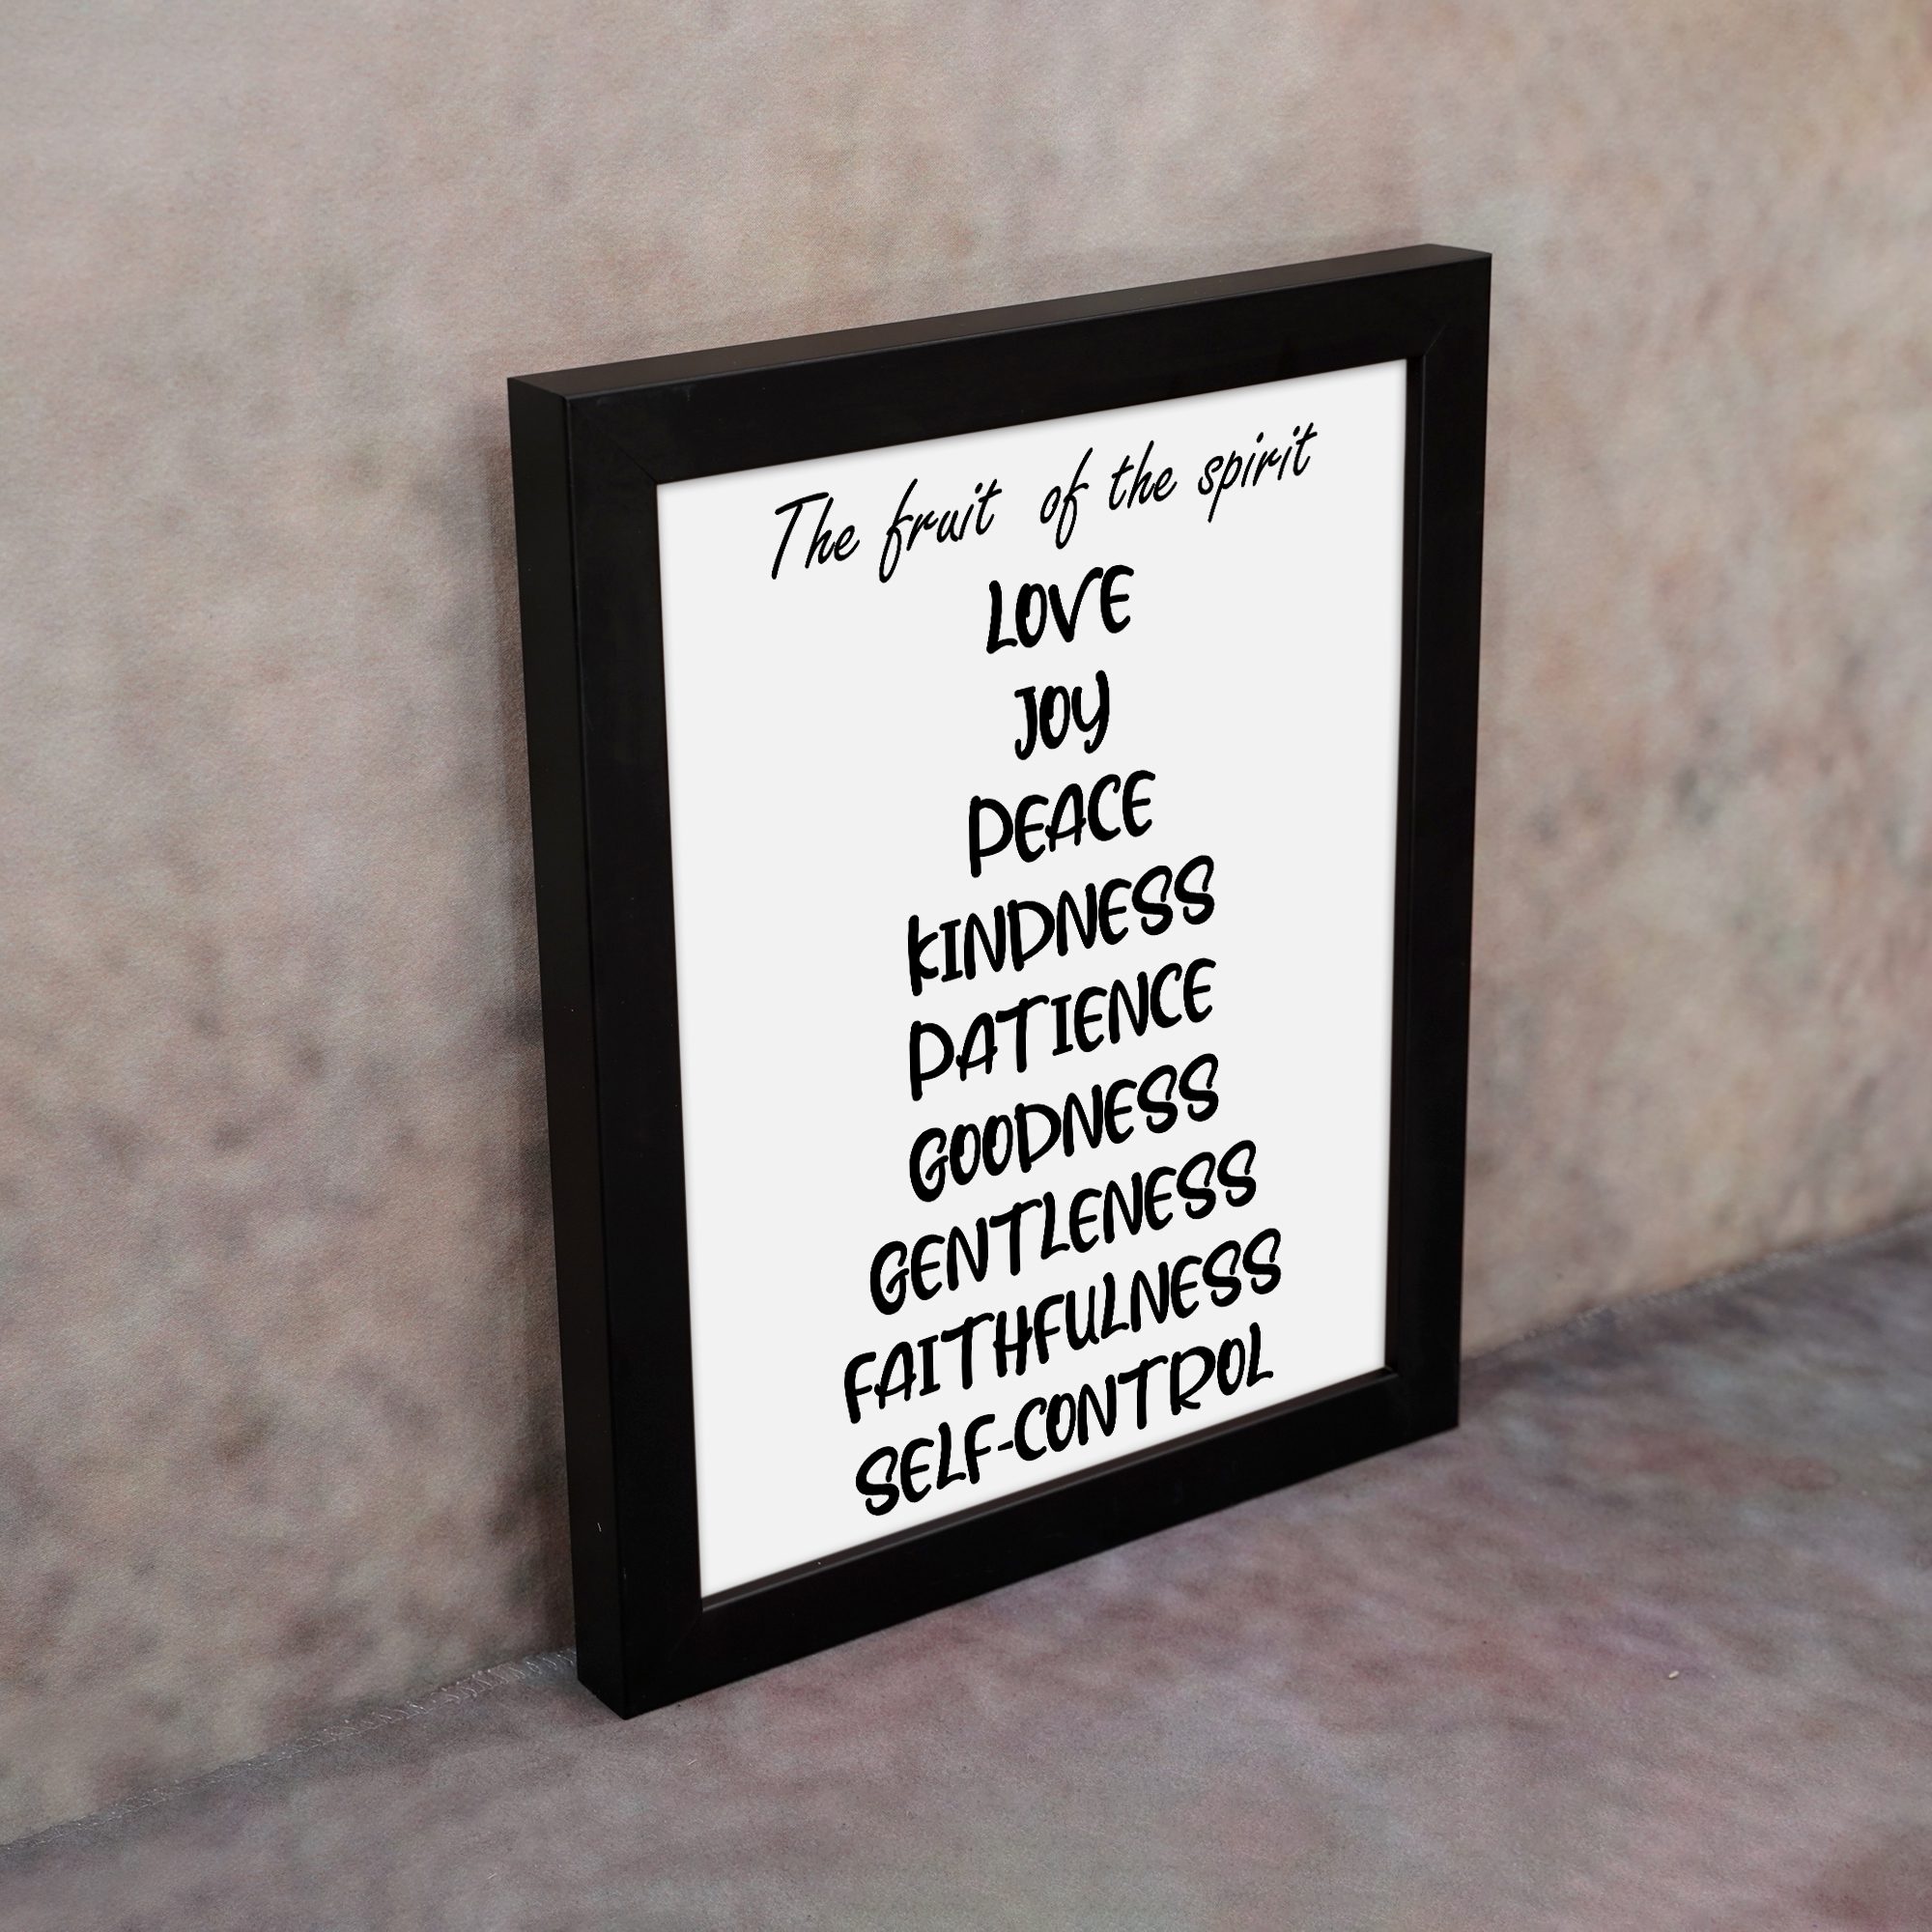 The fruit of the spirit
LOVE
JOY
PEACE
KINDNESS
PATIENCE
GOODNESS
GENTLENESS
FAITHFULNESS
SELF-CONTROL